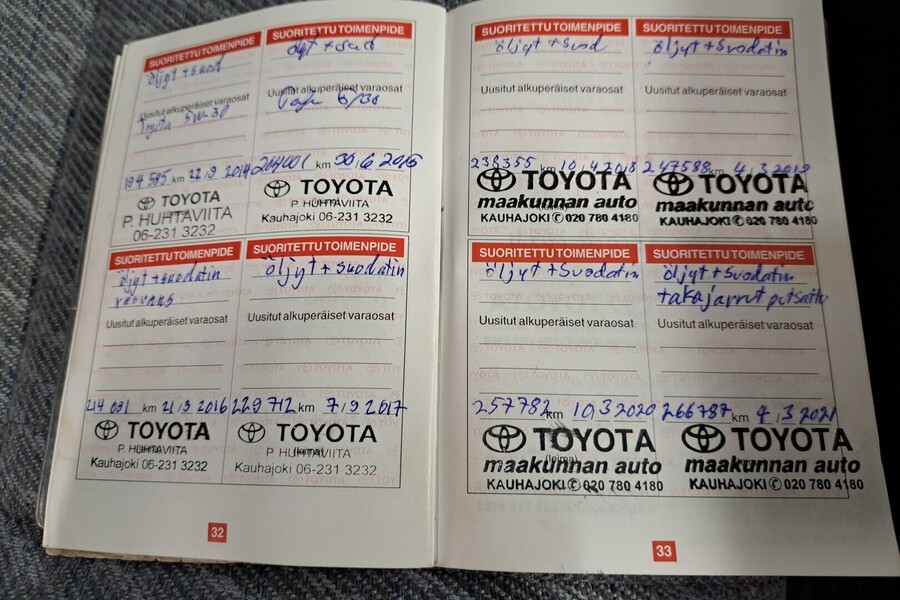 SUORITETTU TOIMENPIDE
öljyt + suod
Uusitut alkuperäiset varaosat
Toyota 5W-30
194 585 km 22.9 2014
TOYOTA
P. HUHTAVIITA
06-231 3232
SUORITETTU TOIMENPIDE
öljyt + suod
Uusitut alkuperäiset varaosat
204001 km 30.6 2015
TOYOTA
P. HUHTAVIITA
Kauhajoki 06-231 3232
SUORITETTU TOIMENPIDE
öljyt + suodatin
Uusitut alkuperäiset varaosat
214 031 km 21.9 2016
TOYOTA
P. HUHTAVIITA
Kauhajoki 06-231 3232
SUORITETTU TOIMENPIDE
öljyt + suodatin
Uusitut alkuperäiset varaosat
229 712 km 7.9 2017
TOYOTA
P. HUHTAVIITA
Kauhajoki 06-231 3232
32
SUORITETTU TOIMENPIDE
öljyt + suod
Uusitut alkuperäiset varaosat
238355 km 10.4 2018
TOYOTA
maakunnan auto
KAUHAJOKI ✆ 020 780 4180
SUORITETTU TOIMENPIDE
öljyt + suodatin
Uusitut alkuperäiset varaosat
247588 km 4.3 2019
TOYOTA
maakunnan auto
KAUHAJOKI ✆ 020 780 4180
SUORITETTU TOIMENPIDE
öljyt + suodatin
Uusitut alkuperäiset varaosat
257782 km 10.3 2020
TOYOTA
(leima)
maakunnan auto
KAUHAJOKI ✆ 020 780 4180
SUORITETTU TOIMENPIDE
öljyt + suodatin
takajarrut putsattu
Uusitut alkuperäiset varaosat
266787 km 4.3 2021
TOYOTA
maakunnan auto
KAUHAJOKI ✆ 020 780 4180
33